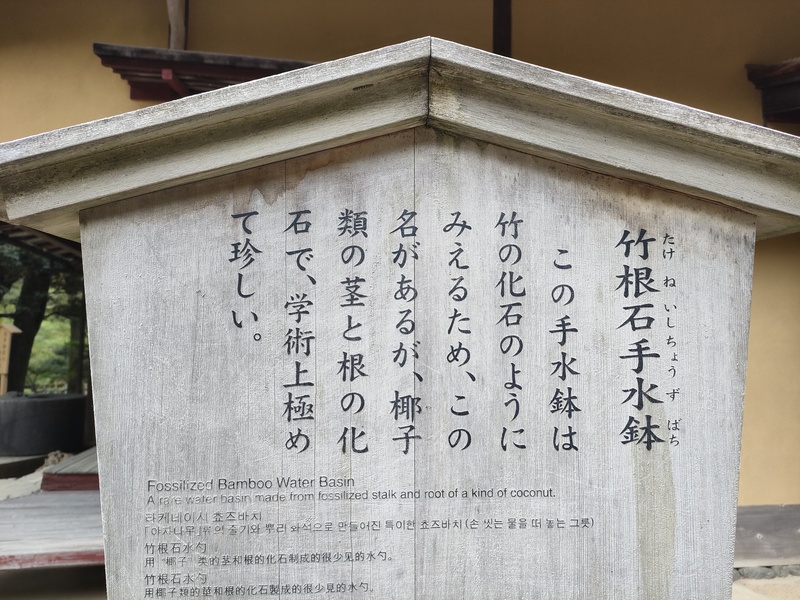 竹根石手水鉢
たけ ね いしちょう ず ばち
この手水鉢は
竹の化石のように
みえるため、この
名があるが、椰子
類の茎と根の化
石で、学術上極め
て珍しい。
Fossilized Bamboo Water Basin
A rare water basin made from fossilized stalk and root of a kind of coconut.
라케네이시 쵸즈바치
「야자나무」류의 줄기와 뿌리 화석으로 만들어진 특이한 쵸즈바치 (손 씻는 물을 떠 놓는 그릇)
竹根石水勺
用“椰子”类的茎和根的化石制成的很少见的水勺。
竹根石水勺
用椰子類的莖和根的化石製成的很少見的水勺。